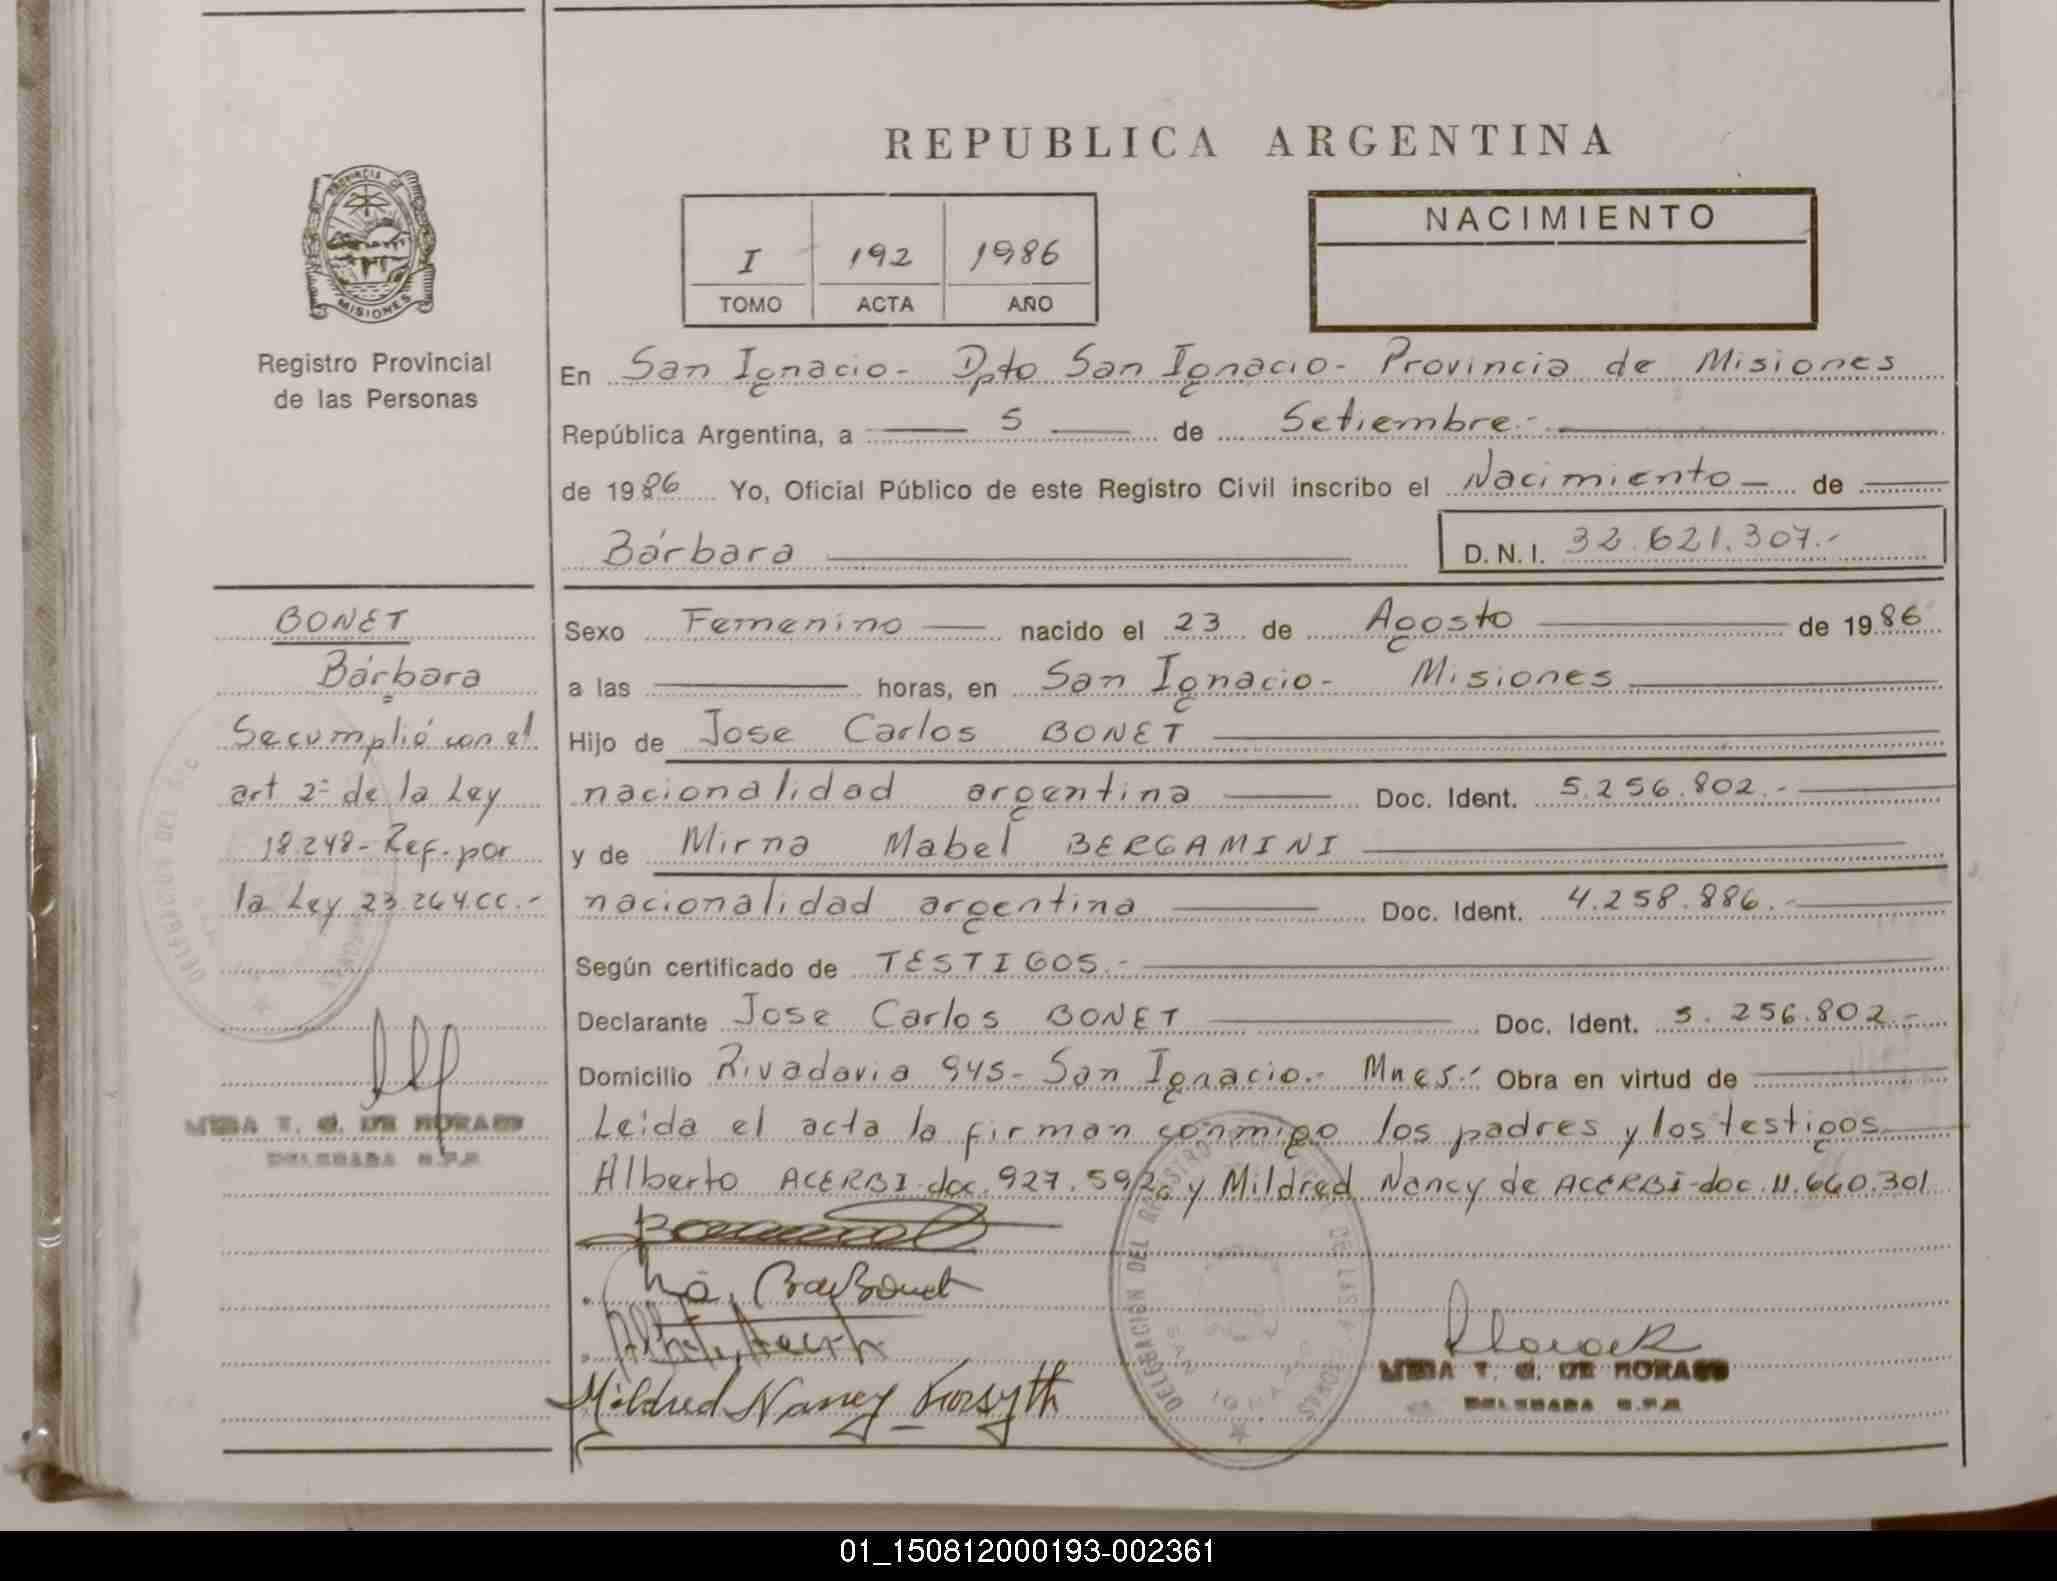 REPUBLICA ARGENTINA
PROVINCIA DE
MISIONES
Registro Provincial
de las Personas
I 192 1986
TOMO ACTA AÑO
NACIMIENTO
En San Ignacio- Dpto San Ignacio- Provincia de Misiones
República Argentina, a 5 de Setiembre.-
de 1986 Yo, Oficial Público de este Registro Civil inscribo el Nacimiento de
Bárbara
D. N. I. 32.621.307.-
BONET
Bárbara
Se cumplió con el
art 2º de la Ley
18.248- Ref. por
la Ley 23.264 CC.-
DELEGADA R.P.P.
Sexo Femenino nacido el 23 de Agosto de 1986
a las horas, en San Ignacio- Misiones
Hijo de Jose Carlos BONET
nacionalidad argentina Doc. Ident. 5.256.802.-
y de Mirna Mabel BERGAMINI
nacionalidad argentina Doc. Ident. 4.258.886.-
Según certificado de TESTIGOS.-
Declarante Jose Carlos BONET Doc. Ident. 5.256.802.-
Domicilio Rivadavia 945- San Ignacio.- Mnes.- Obra en virtud de
Leida el acta la firman conmigo los padres y los testigos
Alberto ACERBI-doc. 927.592 y Mildred Nancy de ACERBI-doc. 11.660.301
Mildred Nancy Forsyth
T. G. DE MORAES
DELEGADA R.P.P.
DELEGACION DEL REGISTRO DE LAS PERSONAS
SAN IGNACIO
01_150812000193-002361